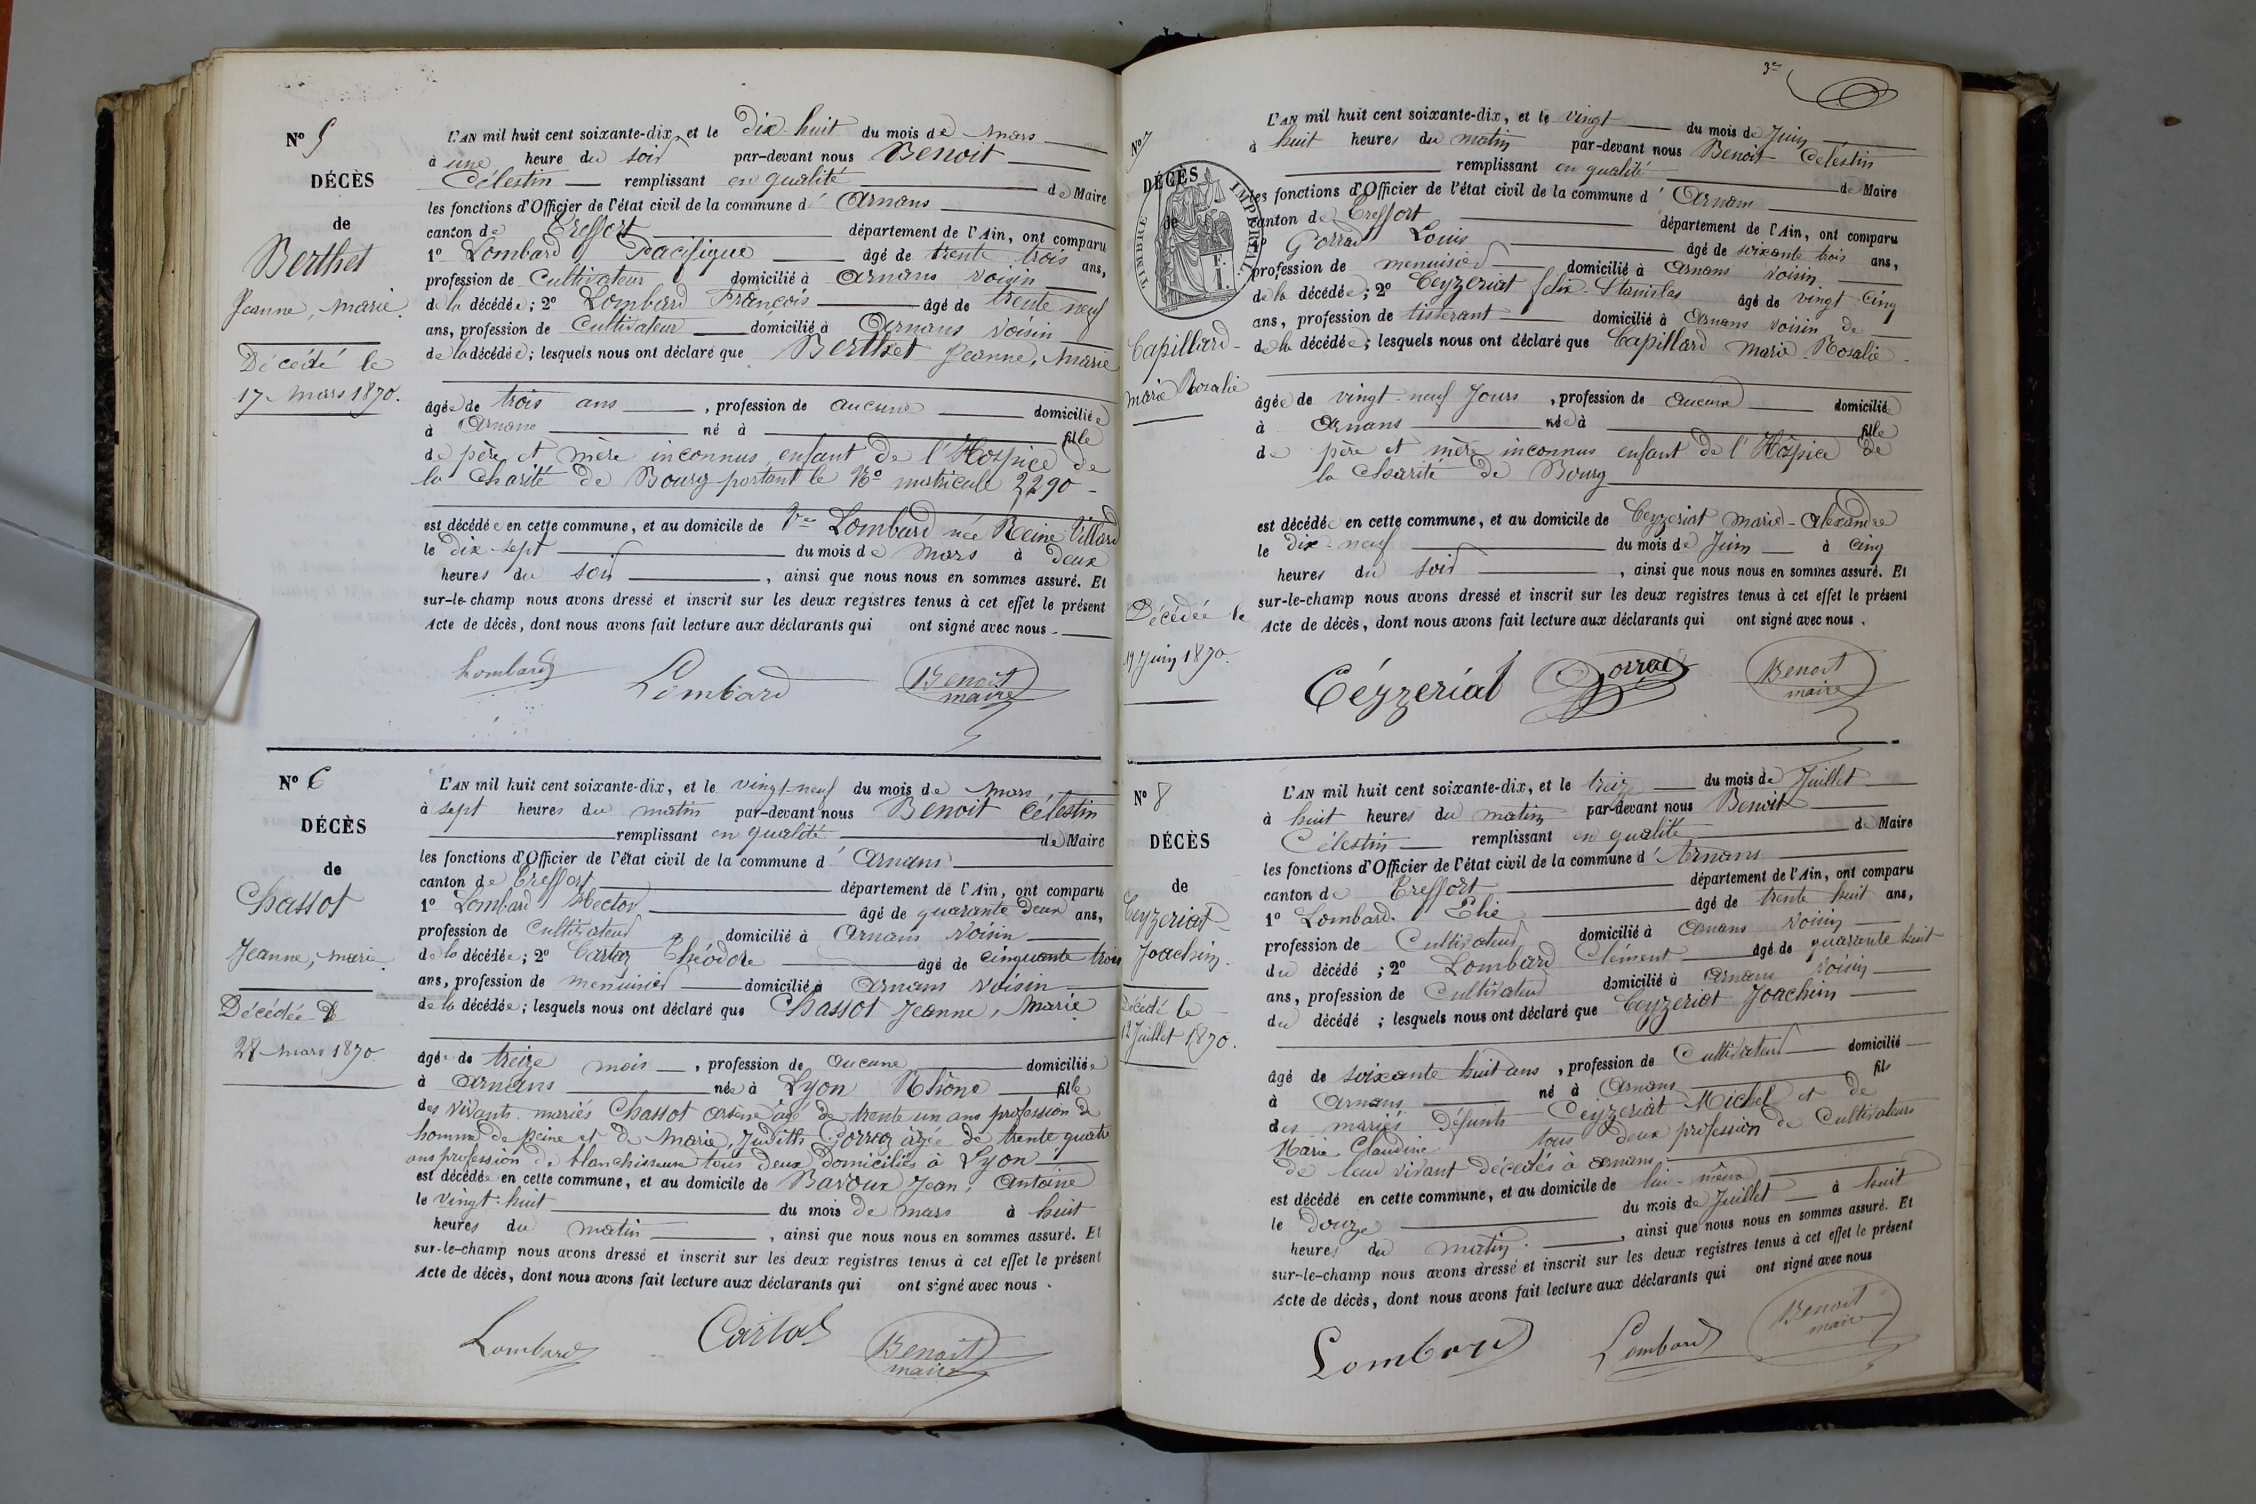 Nº 5
DÉCÈS
de
Berthet
Jeanne, Marie.
Décédé le
17 Mars 1870.
L'AN mil huit cent soixante-dix, et le dix-huit du mois de Mars
à une heure du soir par-devant nous Benoit
Célestin remplissant en qualité de Maire
les fonctions d'Officier de l'état civil de la commune d' Arnans
canton de Treffort département de l'Ain, ont comparu
1º Lombard Pacifique âgé de trente trois ans,
profession de Cultivateur domicilié à Arnans voisin
de la décédée; 2º Lombard François âgé de trente neuf
ans, profession de Cultivateur domicilié à Arnans voisin
de la décédée; lesquels nous ont déclaré que Berthet Jeanne, Marie
âgée de trois ans, profession de aucune domiciliée
à Arnans né à fille
de père et mère inconnus enfant de l'Hospice de
la Charité de Bourg portant le Nº matricule 2290 -
est décédée en cette commune, et au domicile de Vve Lombard née Reine Villard
le dix-sept du mois de Mars à deux
heures du soir, ainsi que nous nous en sommes assuré. Et
sur-le-champ nous avons dressé et inscrit sur les deux registres tenus à cet effet le présent
Acte de décès, dont nous avons fait lecture aux déclarants qui ont signé avec nous.
Lombard Lombard Benoit
maire
Nº 6
DÉCÈS
de
Chassot
Jeanne, Marie.
Décédée le
28 Mars 1870
L'AN mil huit cent soixante-dix, et le vingt-neuf du mois de Mars
à sept heures du matin par-devant nous Benoit Célestin
remplissant en qualité de Maire
les fonctions d'Officier de l'état civil de la commune d' Arnans
canton de Treffort département de l'Ain, ont comparu
1º Lombard Hector âgé de quarante deux ans,
profession de Cultivateur domicilié à Arnans voisin
de la décédée; 2º Cartaz Théodore âgé de cinquante trois
ans, profession de menuisier domicilié à Arnans voisin
de la décédée; lesquels nous ont déclaré que Chassot Jeanne, Marie
âgée de treize mois, profession de aucune domiciliée
à Arnans née à Lyon Rhône fille
des vivants mariés Chassot arsène âgé de trente un ans profession de
homme de peine et de Marie, Judith Gorraz âgée de trente quatre
ans profession de blanchisseuse tous deux domiciliés à Lyon
est décédée en cette commune, et au domicile de Bavoux Jean, Antoine
le vingt-huit du mois de mars à huit
heures du matin, ainsi que nous nous en sommes assuré. Et
sur-le-champ nous avons dressé et inscrit sur les deux registres tenus à cet effet le présent
Acte de décès, dont nous avons fait lecture aux déclarants qui ont signé avec nous.
Lombard Cartaz Benoit
maire
3e
Nº 7
DÉCÈS
de
TIMBRE IMPÉRIAL.
Capillard
Marie Rosalie
Décédée le
19 Juin 1870.
L'AN mil huit cent soixante-dix, et le vingt du mois de Juin
à huit heures du matin par-devant nous Benoit Célestin
remplissant en qualité de Maire
les fonctions d'Officier de l'état civil de la commune d' Arnans
canton de Treffort département de l'Ain, ont comparu
1º Gorraz Louis âgé de soixante trois ans,
profession de menuisier domicilié à Arnans voisin
de la décédée; 2º Ceyzeriat felix-Stanislas âgé de vingt-cinq
ans, profession de tisserant domicilié à Arnans voisin de
de la décédée; lesquels nous ont déclaré que Capillard Marie Rosalie
âgée de vingt-neuf Jours, profession de aucune domiciliée
à Arnans née à fille
de père et mère inconnus enfant de l'Hôpice de
la Charité de Bourg
est décédée en cette commune, et au domicile de Ceyzeriat Marie-Alexandre
le dix-neuf du mois de Juin à cinq
heures du soir, ainsi que nous nous en sommes assuré. Et
sur-le-champ nous avons dressé et inscrit sur les deux registres tenus à cet effet le présent
Acte de décès, dont nous avons fait lecture aux déclarants qui ont signé avec nous.
Céyzeriat Gorraz Benoit
maire
Nº 8
DÉCÈS
de
Ceyzeriat
Joachim.
Décédé le
12 Juillet 1870.
L'AN mil huit cent soixante-dix, et le treize du mois de Juillet
à huit heures du matin par-devant nous Benoit
Célestin remplissant en qualité de Maire
les fonctions d'Officier de l'état civil de la commune d' Arnans
canton de Treffort département de l'Ain, ont comparu
1º Lombard Elie âgé de trente huit ans,
profession de Cultivateur domicilié à Arnans voisin
du décédé; 2º Lombard Clément âgé de quarante huit
ans, profession de Cultivateur domicilié à Arnans voisin
du décédé; lesquels nous ont déclaré que Ceyzeriat Joachim
âgé de soixante huit ans, profession de Cultivateur domicilié
à Arnans né à Arnans fils
des mariés Défunts Ceyzeriat Michel et de
Marie Claudine tous deux profession de Cultivateurs
de leur vivant décédés à arnans
est décédé en cette commune, et au domicile de lui-même
le douze du mois de Juillet à huit
heures du matin, ainsi que nous nous en sommes assuré. Et
sur-le-champ nous avons dressé et inscrit sur les deux registres tenus à cet effet le présent
Acte de décès, dont nous avons fait lecture aux déclarants qui ont signé avec nous
Lombard Lombard Benoit
maire